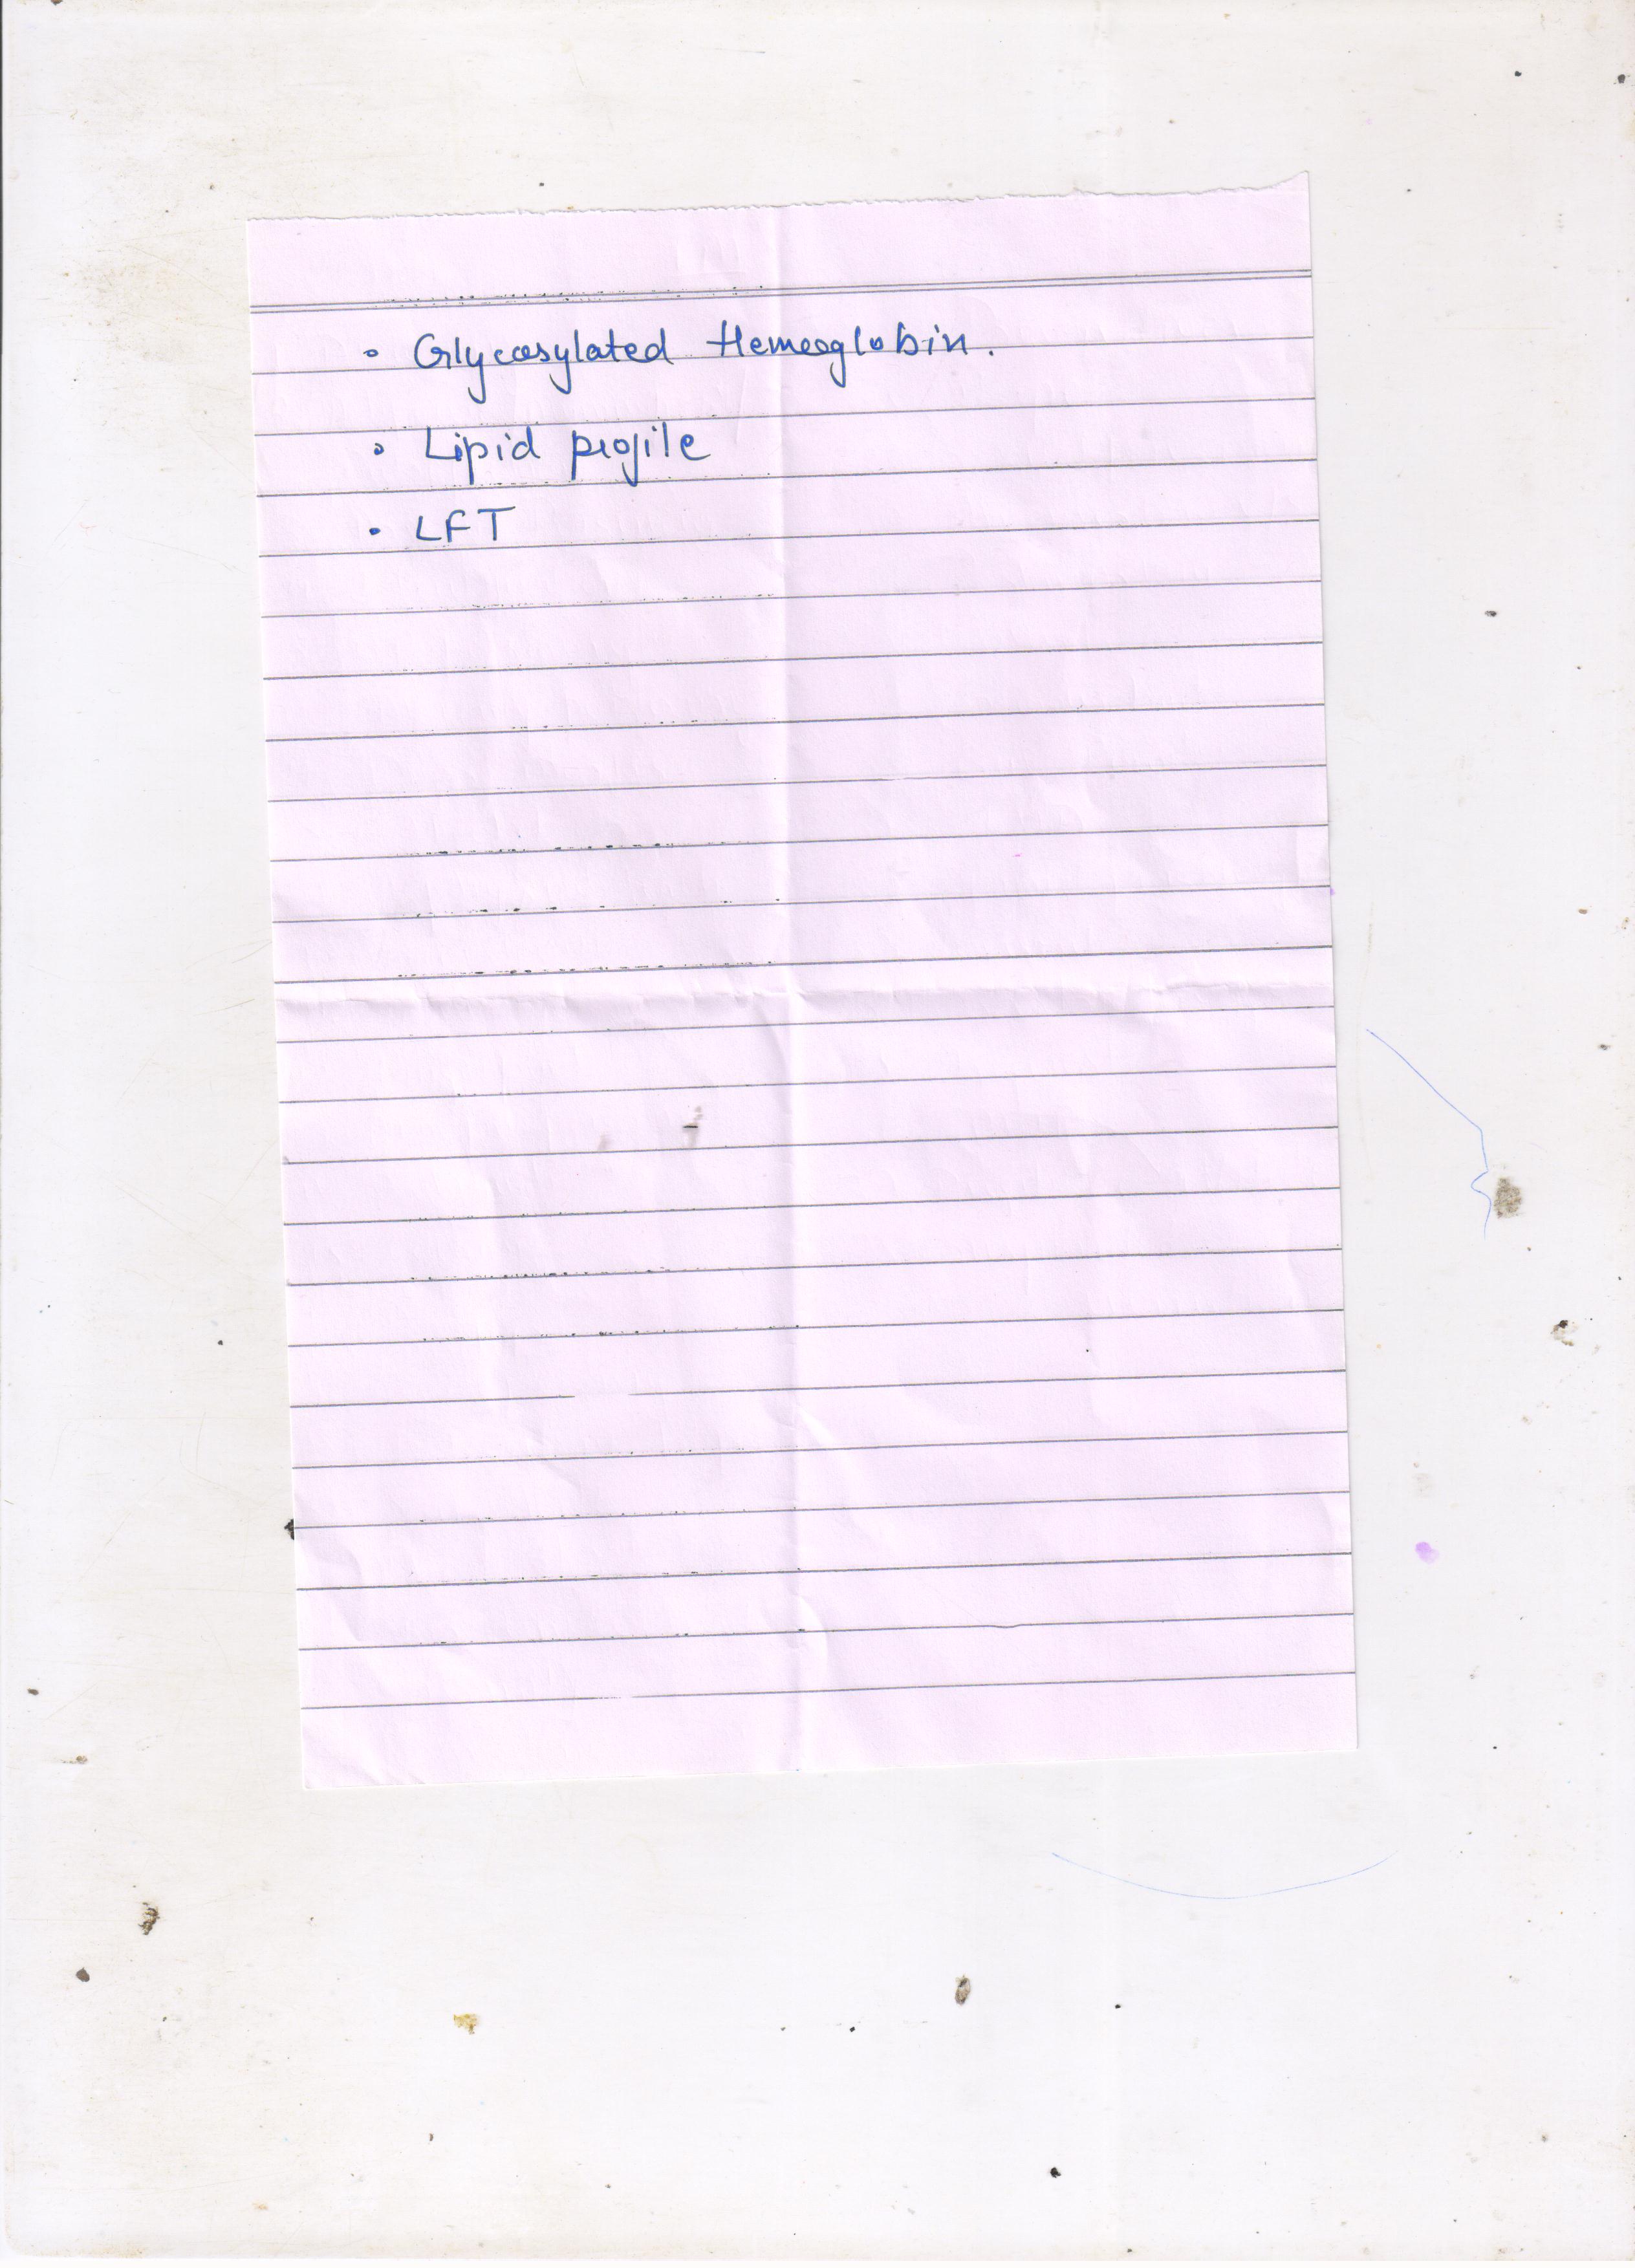 • Glycosylated Hemeoglobin.
• Lipid profile
• LFT